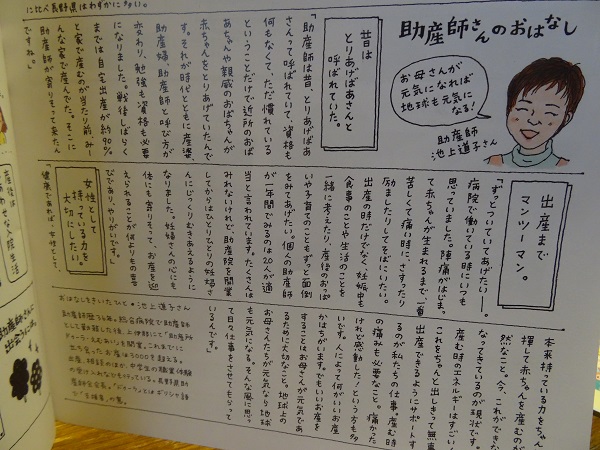 に比べ長野県はわずかに多い。
助産師さんのおはなし
お母さんが
元気になれば
地球も元気に
なる!
助産師
池上道子さん
昔は
とりあげばあさんと
呼ばれていた。
「助産師は昔、とりあげばあ
さんって呼ばれていて、資格も
何もなくて、ただ慣れている
ということだけで近所のおば
あちゃんや親戚のおばちゃんが
赤ちゃんをとりあげていたんで
す。それが時代とともに産婆、
助産婦、助産師と呼び方が
変わり、勉強も資格も必要
になりました。戦後しばらく
までは自宅出産が約90%
と家で産むのが当たり前。み
んな家で産んでた。そこに
助産師が寄りそって来たん
ですね。」
出産まで
マンツーマン。
「ずっとついていてあげたい!」
病院で働いている時にいつも
思っていました。陣痛がはじまっ
て赤ちゃんが生まれるまで、一番
苦しくて痛い時に、さすったり
励ましたりしてそばにいたい。
出産の時だけでなく、妊娠中も
食事のことや生活のことを
一緒に考えたり、産後のおっぱ
いや子育てのこともずっと面倒
をみてあげたい。個人の助産師
が一年間でみるのは20人が適
当と言われています。たくさんは
みれないけれど、助産院を開業
してからはひとりひとりの妊婦さ
んにじっくりむきあえるように
なりました。妊婦さんの心にも
体にも寄りそって、お産を迎
えられることが何よりもの喜
びであり、やりがいです。」
女性として
持っている力を
大切にしたい。
「健康であれば、女性として、
本来持っている力をちゃん
揮して赤ちゃんを産むのが
然なこと。今、これができな
なってきているのが現状です。
産む時のエネルギーはすごい
これをちゃんと出しきって無事
出産できるようにサポートす
るのが私たちの仕事。産む時
の痛みも必要なこと。痛かった
けれど感動した!という方も多
いです。人によって何がいいお産
かはちがいます。でもいいお産を
することはお母さんが元気であ
るために大切なこと。地球上の
お母さんたちが元気なら地球
も元気になる。そんな風に思っ
て日々仕事をさせてもらって
いるんです。」
おはなしをきいたひと・池上道子さん